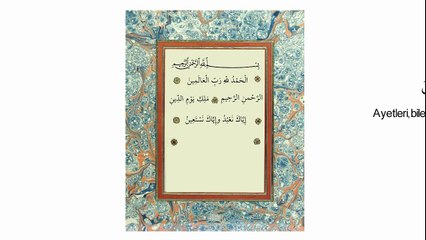 بسم الله الرحمن الرحيم
الْحَمْدُ لِلَّهِ رَبِّ الْعَالَمِينَ
الرَّحْمنِ الرَّحِيمِ مَلِكِ يَوْمِ الدِّينِ
إِيَّاكَ نَعْبُدُ وإِيَّاكَ نَسْتَعِينُ
Ayetleri, bile